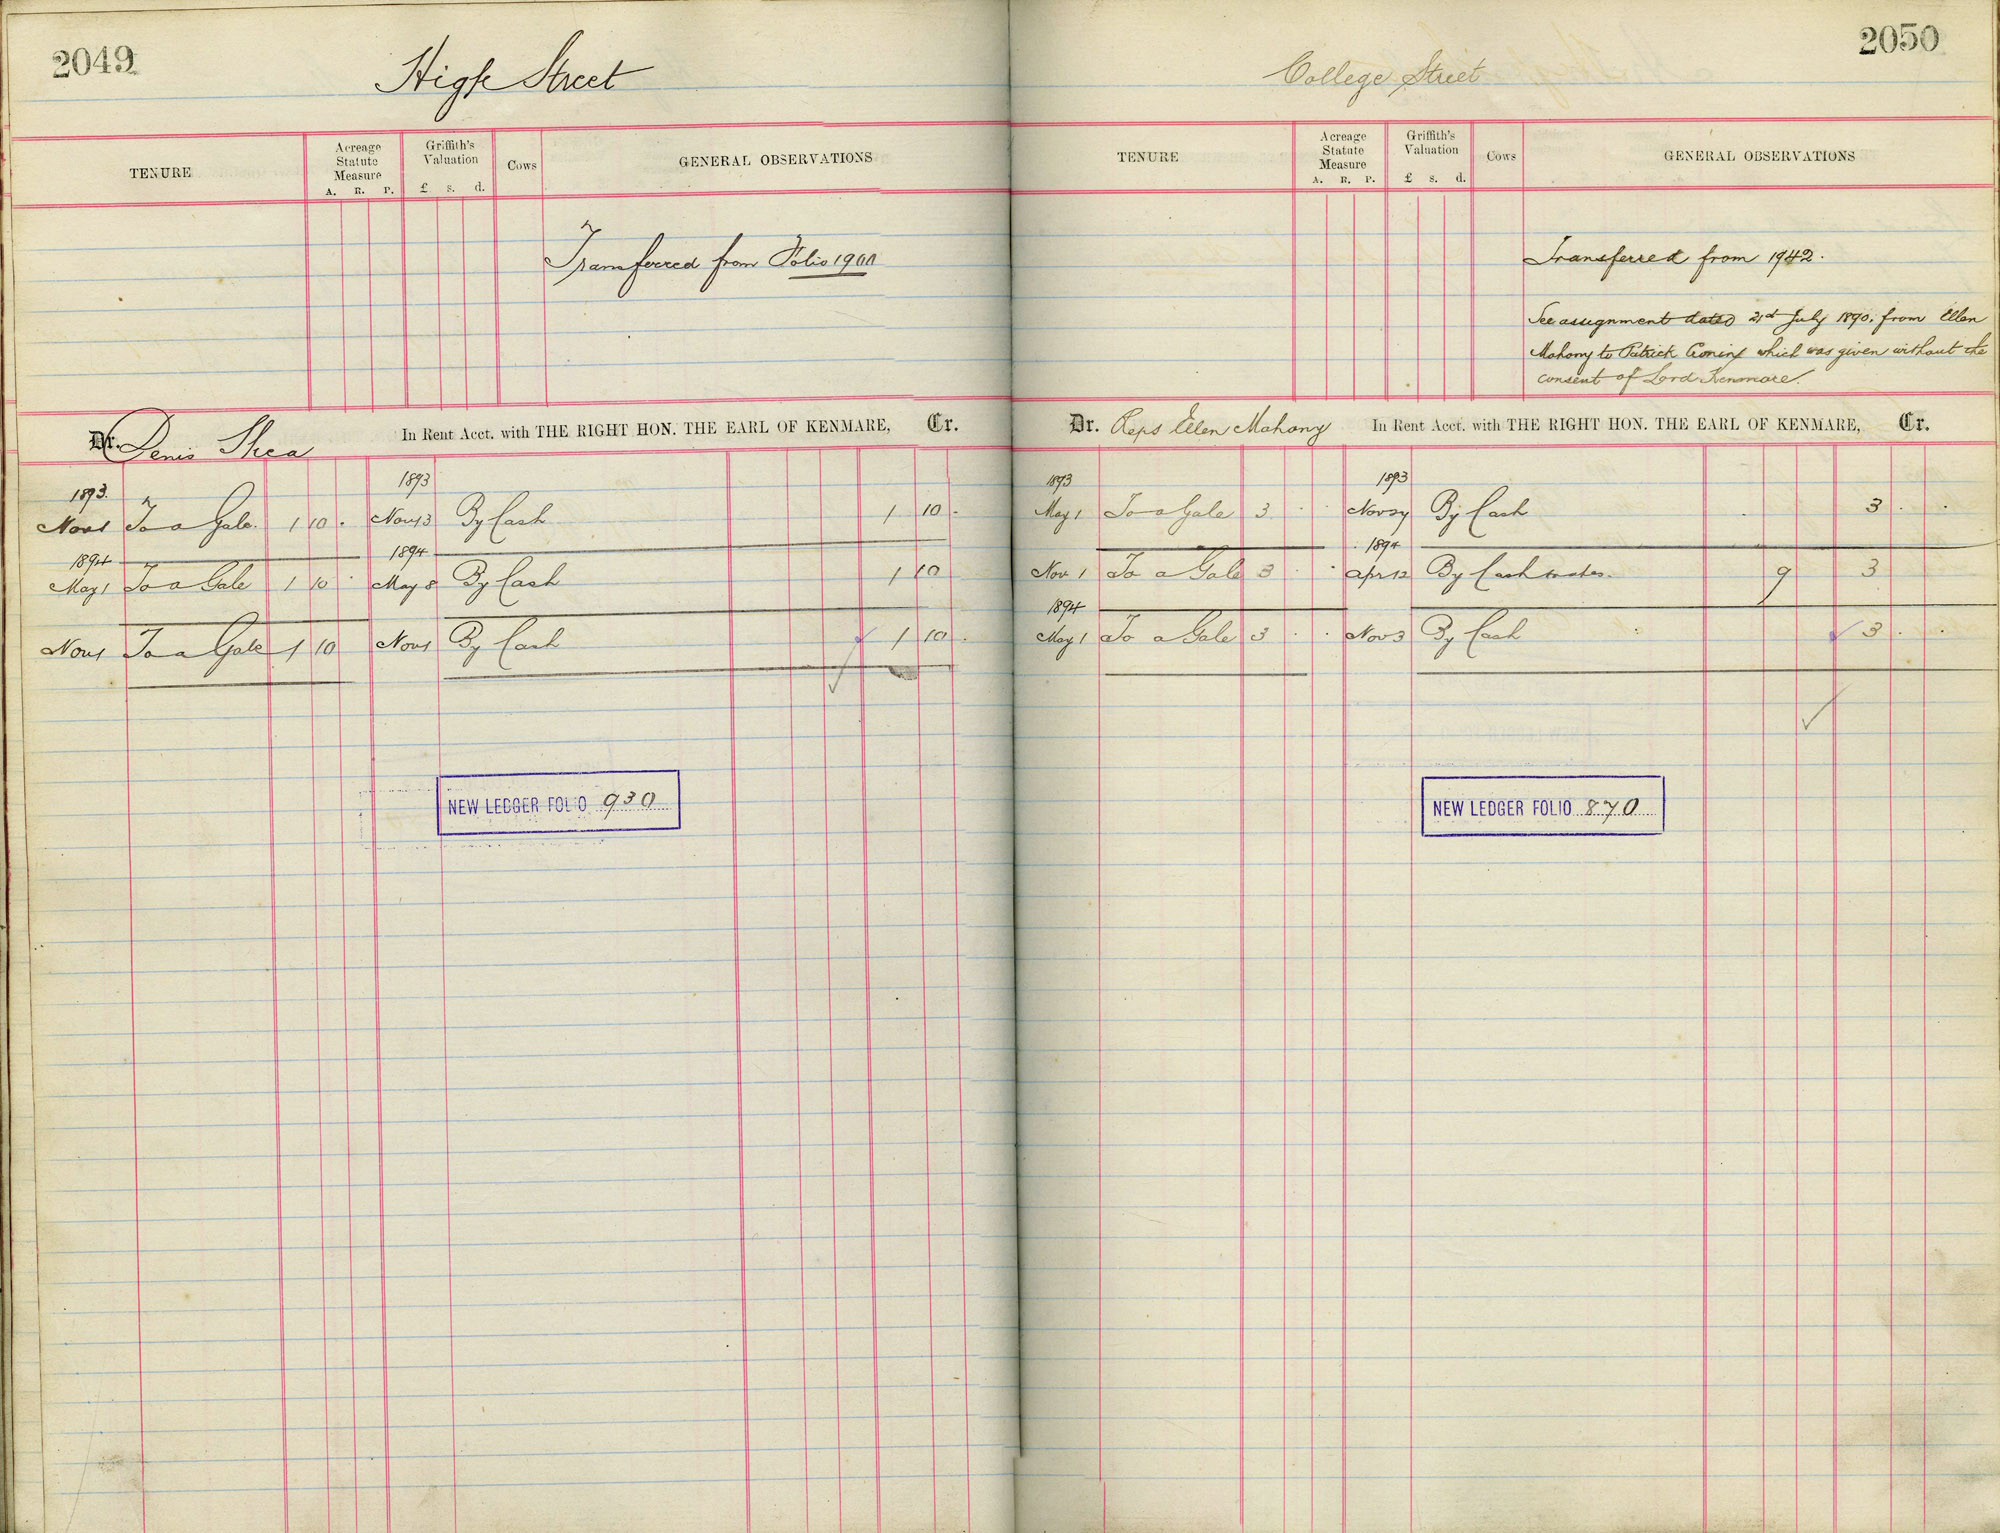 2049
High Street
TENURE
Acreage Statute Measure
A. R. P.
Griffith's Valuation
£ s. d.
Cows
GENERAL OBSERVATIONS
Transferred from Folio 1900
Dr. Denis Shea In Rent Acct. with THE RIGHT HON. THE EARL OF KENMARE, Cr.
1893. 1893
Nov 1 To a Gale. 1 10 . Nov 13 By Cash 1 10 .
1894 1894
May 1 To a Gale 1 10 . May 8 By Cash 1 10
Nov 1 To a Gale 1 10 Nov 1 By Cash 1 10 .
NEW LEDGER FOLIO 930
2050
College Street
TENURE
Acreage Statute Measure
A. R. P.
Griffith's Valuation
£ s. d.
Cows
GENERAL OBSERVATIONS
Transferred from 1942.
See assignment dated 21st July 1890. from Ellen
Mahony to Patrick which was given without the
consent of Lord Kenmare.
Dr. Reps Ellen Mahony In Rent Acct. with THE RIGHT HON. THE EARL OF KENMARE, Cr.
1893 1893
May 1 To a Gale 3 . . Nov 27 By Cash 3 . .
1894
Nov 1 To a Gale 3 . . Apr 12 By Cash 9 3
1894
May 1 To a Gale 3 . . Nov 3 By Cash 3 . .
NEW LEDGER FOLIO 870